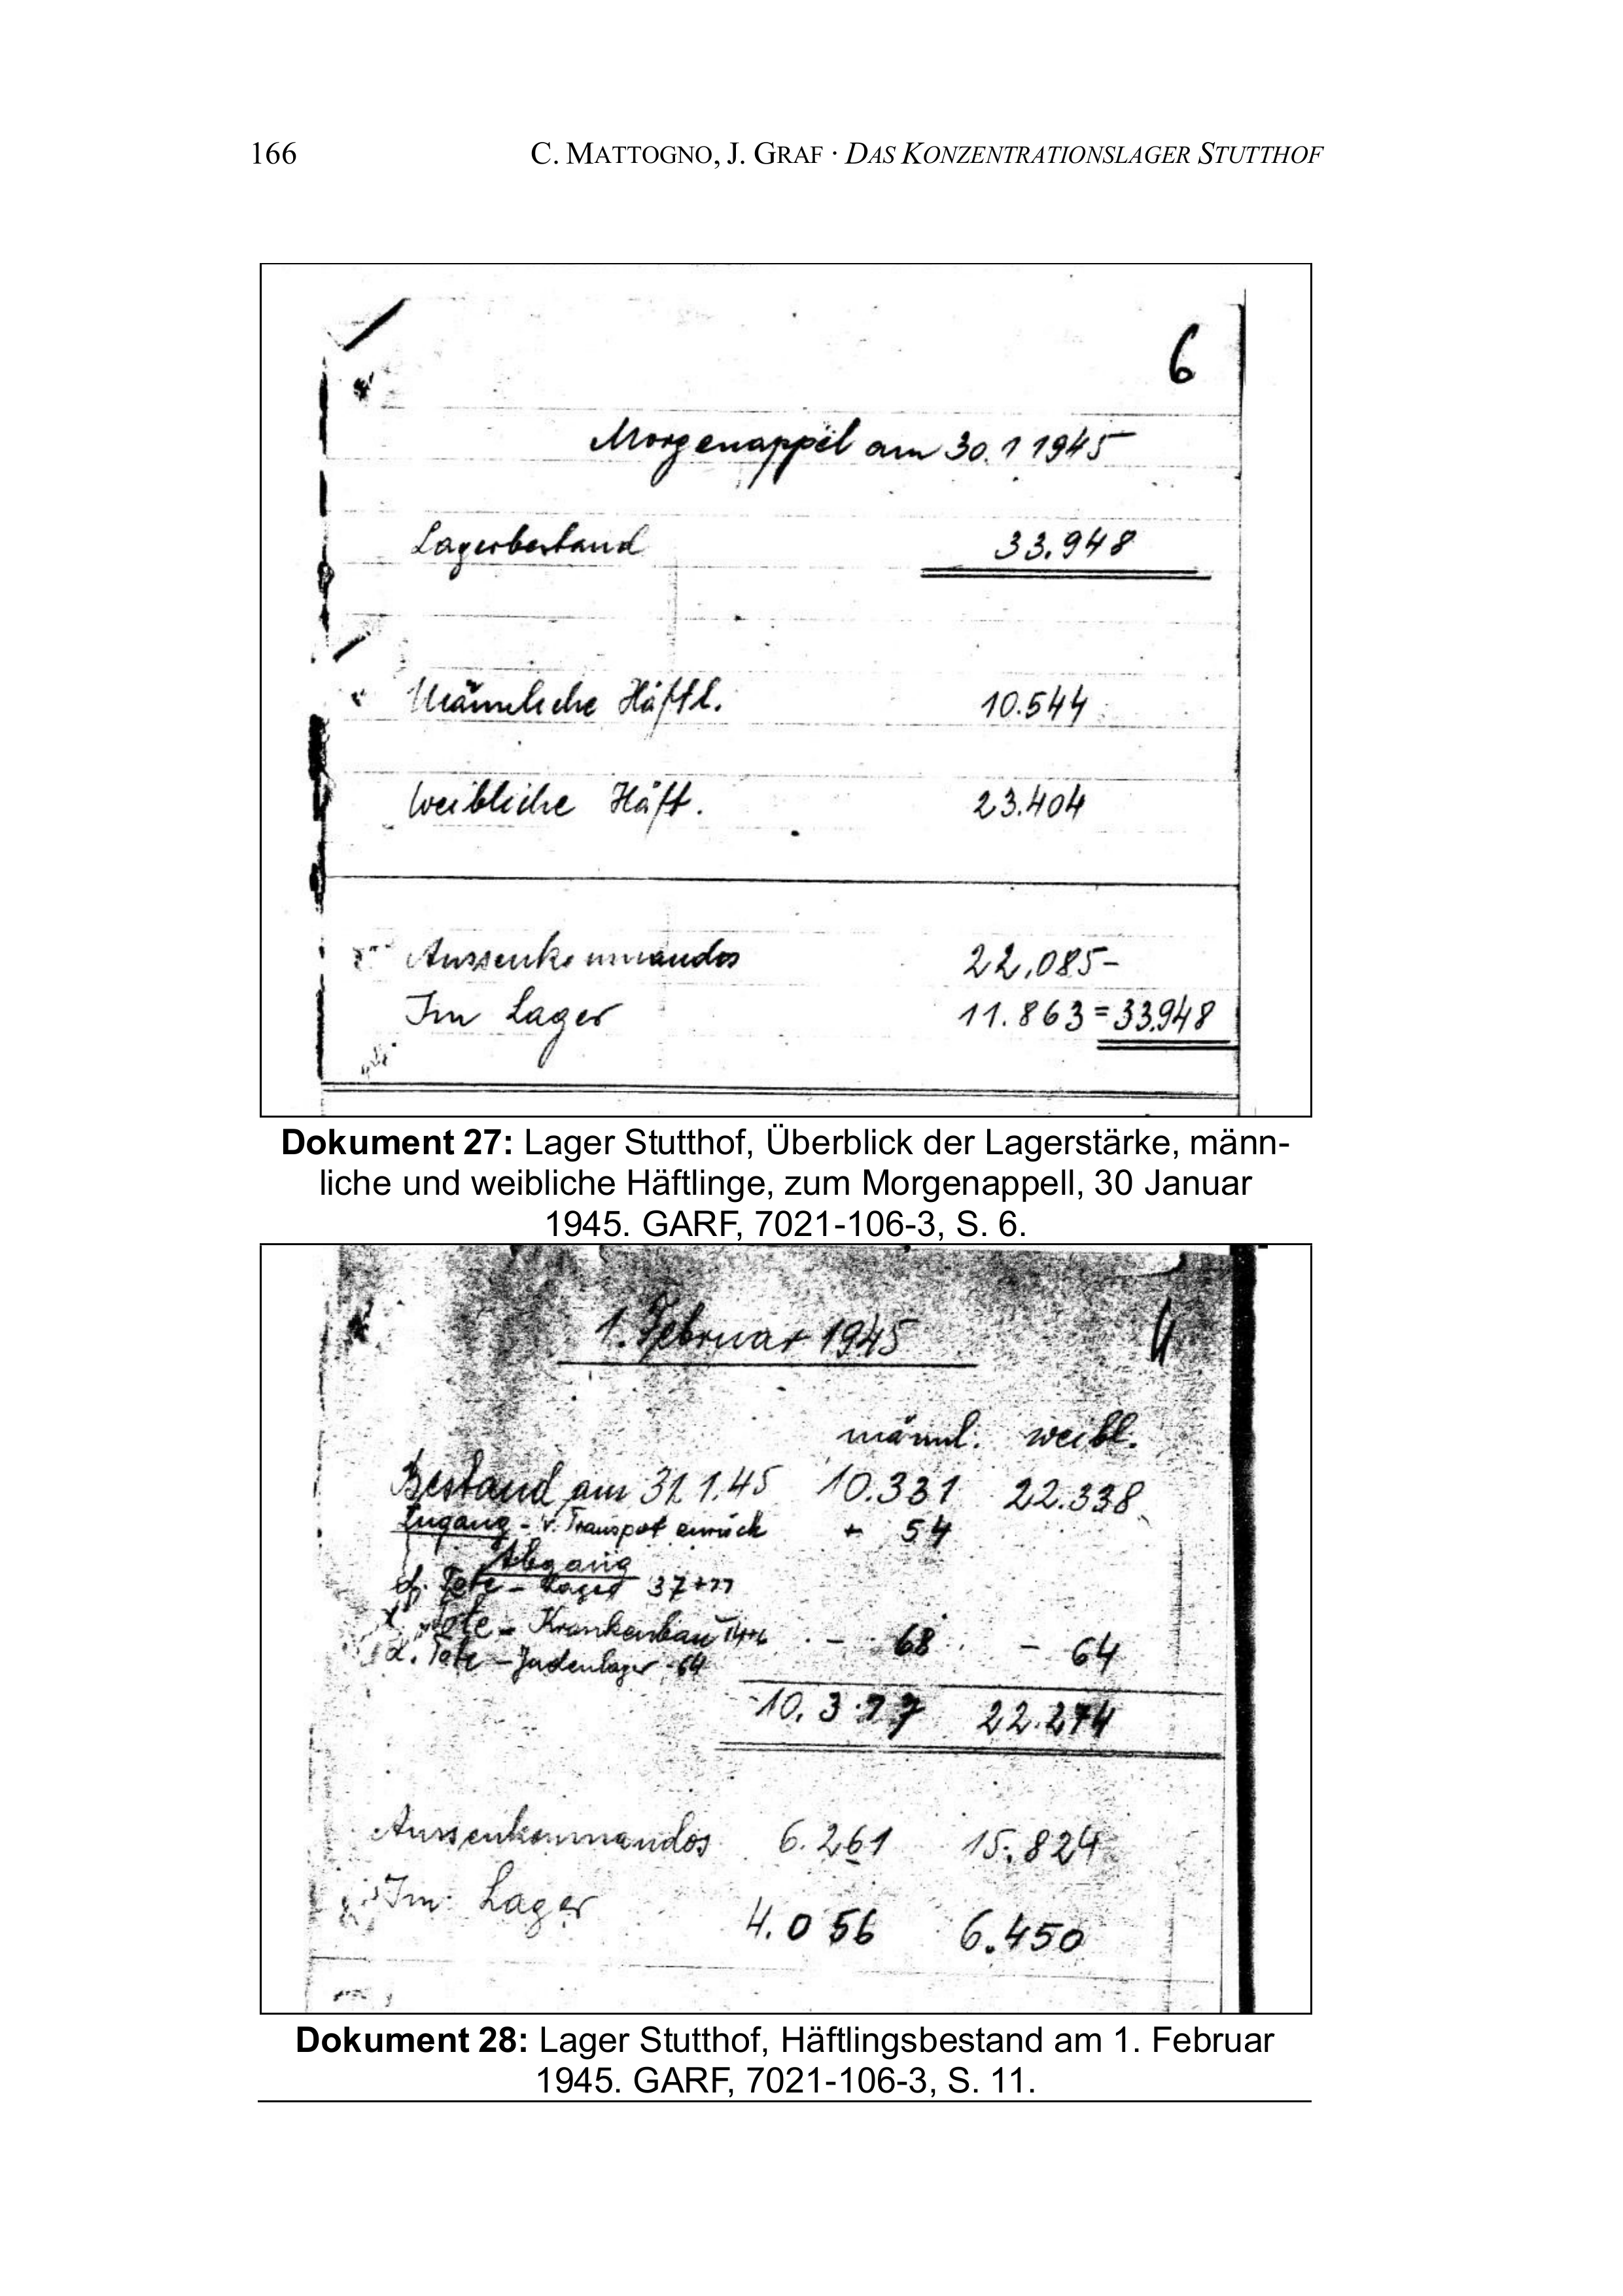 166
C. MATTOGNO, J. GRAF · DAS KONZENTRATIONSLAGER STUTTHOF
6
Morgenappel am 30.1 1945
Lagerbestand 33.948
Männliche Häftl. 10.544
Weibliche Häft. 23.404
Aussenkommandos 22.085-
Im Lager 11.863=33.948
Dokument 27: Lager Stutthof, Überblick der Lagerstärke, männ-
liche und weibliche Häftlinge, zum Morgenappell, 30 Januar
1945. GARF, 7021-106-3, S. 6.
1. Februar 1945
männl. weibl.
Bestand am 31.1.45 10.331 22.338
Zugang - v. Transport zurück + 54
Abgang
Tote - Lager 37+11
Tote - Krankenbau 14+6 - 68 - 64
Tote - Judenlager - 64
10.317 22.274
Aussenkommandos 6.261 15.824
Im Lager 4.056 6.450
Dokument 28: Lager Stutthof, Häftlingsbestand am 1. Februar
1945. GARF, 7021-106-3, S. 11.